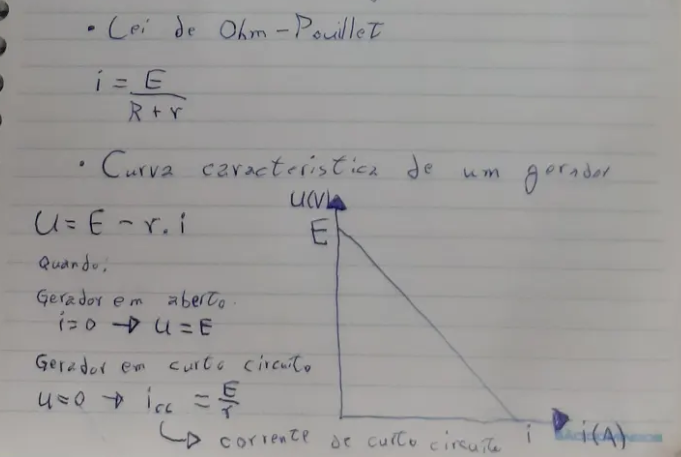 • Lei de Ohm-Pouillet
i = E
R + r
• Curva caracteristica de um gerador
U = E - r. i
Quando:
Gerador em aberto.
i=0 → U = E
Gerador em curto circuito
U=0 → icc = E/r
↳ corrente de curto circuito
U(V)
E
i
i(A)